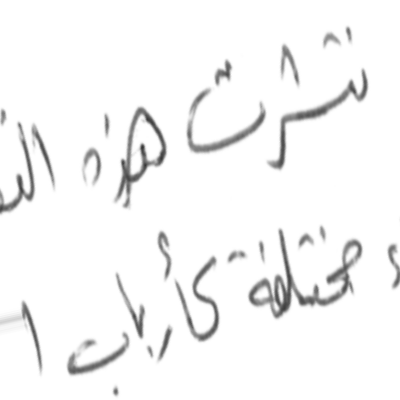 نشرت هذه
مختلفة كأرباب